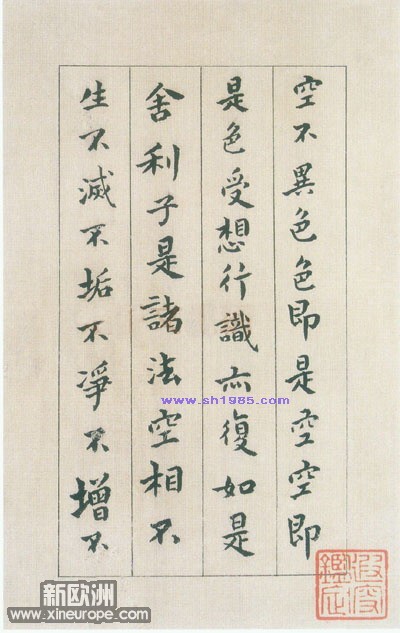 空不異色色即是空空即
是色受想行識亦復如是
舍利子是諸法空相不
生不滅不垢不淨不增不
www.sh1985.com
新欧洲
www.xineurope.com